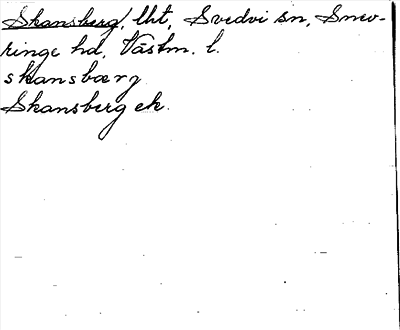 Skansberg, lht, Svedvi sn, Snev-
ringe hd, Västm. l.
skansbærg
Skansberg ek.